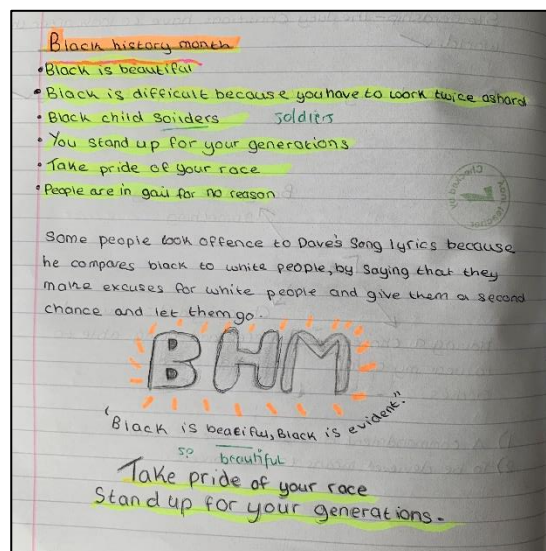 Black history month
• Black is beautiful
• Black is difficult because you have to work twice as hard
• Black child soilders soldiers
• You stand up for your generations
• Take pride of your race
• People are in gail for no reason
Some people took offence to Dave's song lyrics because
he compares black to white people, by saying that they
make excuses for white people and give them a second
chance and let them go.
BHM
"Black is beatiful, Black is evident."
sp beautiful
Take pride of your race
Stand up for your generations.